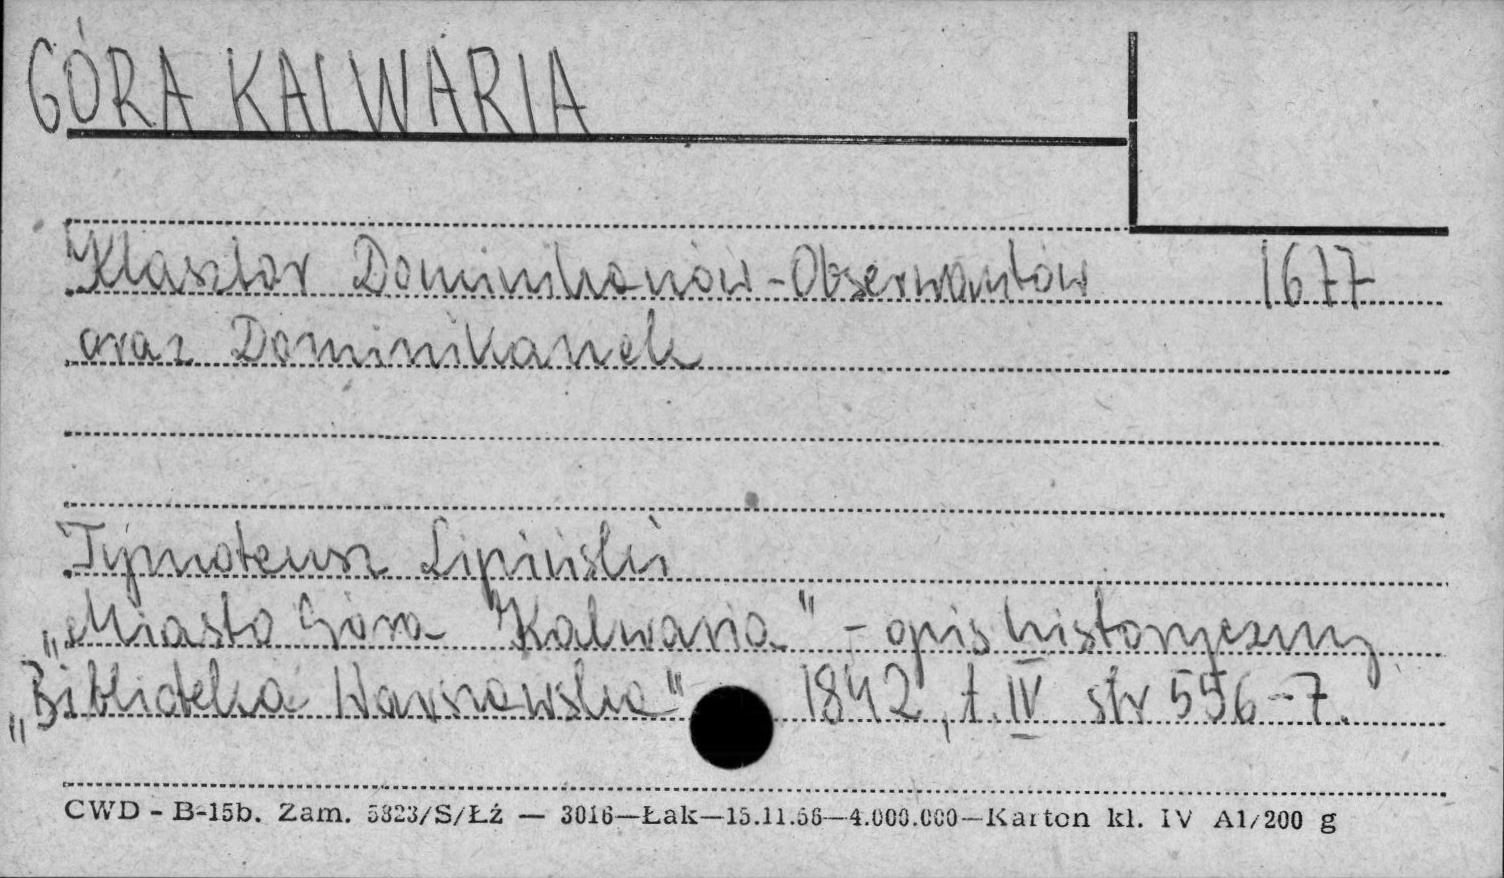 GÓRA KALWARIA
Klasztor Dominikanów-Obserwantów 1677
oraz Dominikanek
Tymoteusz Lipiński
„Miasto Góra Kalwaria" - opis historyczny
„Biblioteka Warszawska" 1842, t. IV str 556-7.
CWD - B-15b. Zam. 5823/S/Łź — 3016—Łak—15.11.56—4.000.000—Karton kl. IV A1/200 g